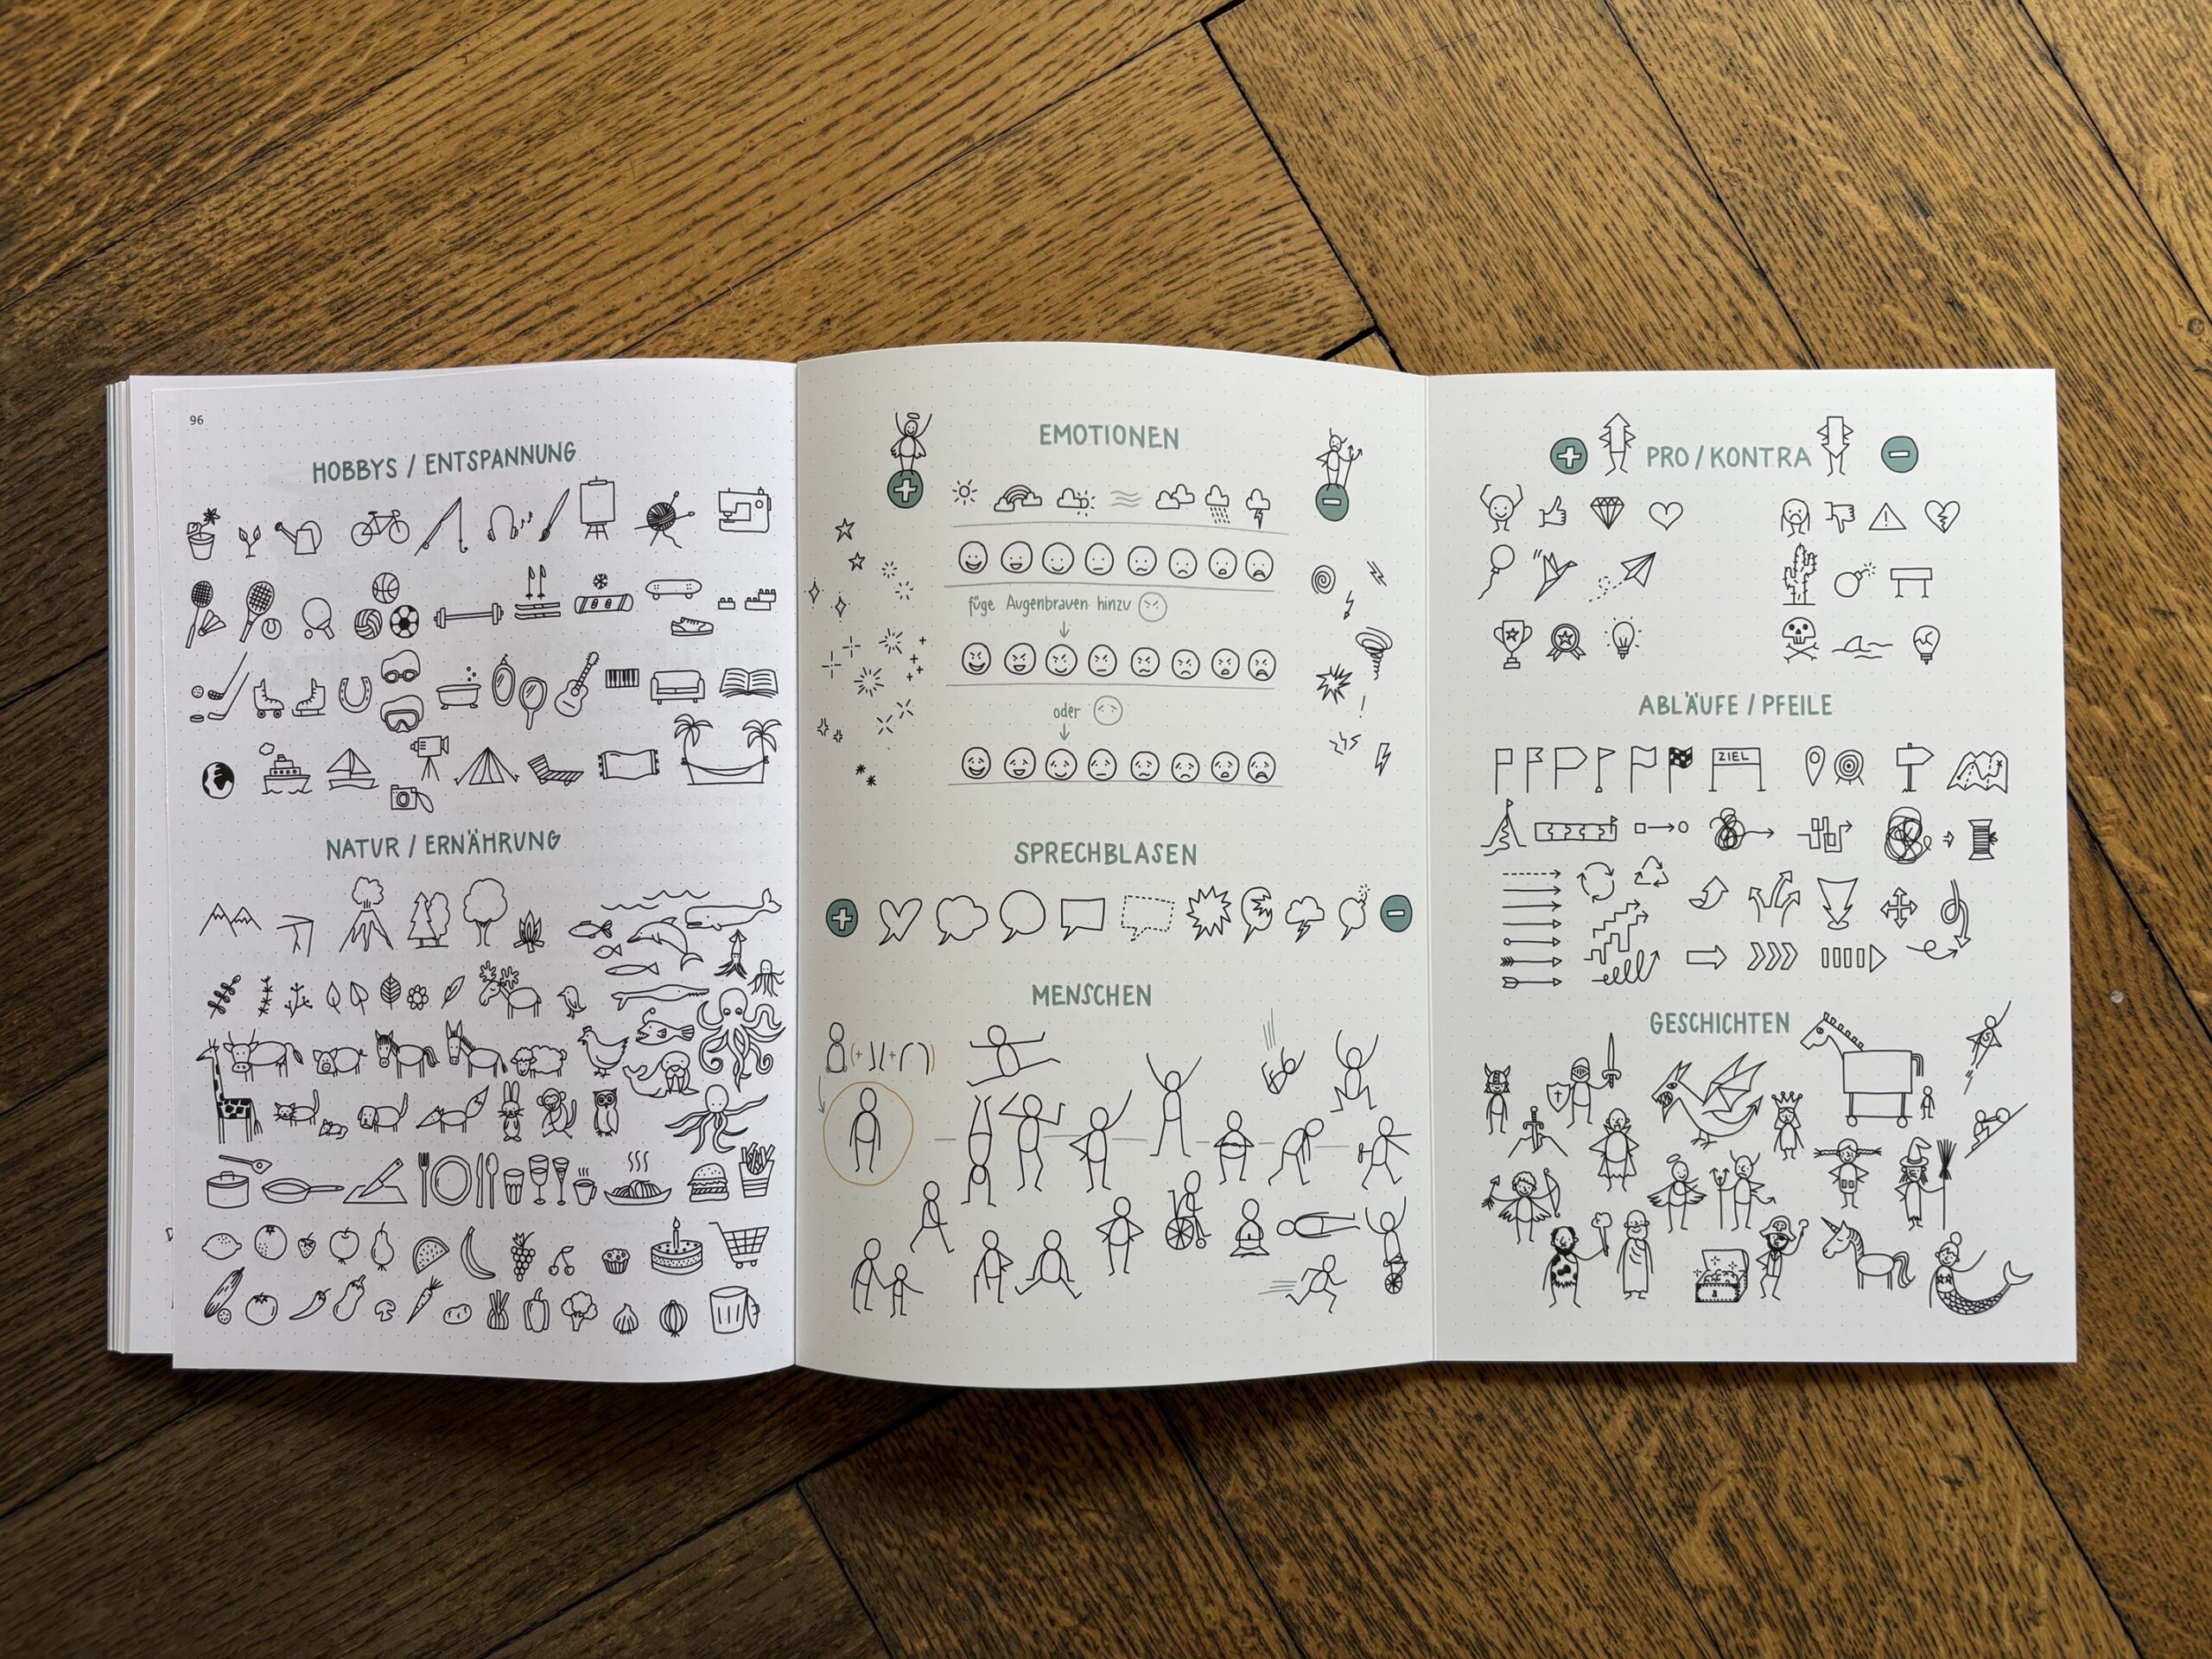 96
HOBBYS / ENTSPANNUNG
NATUR / ERNÄHRUNG
EMOTIONEN
füge Augenbrauen hinzu
oder
SPRECHBLASEN
MENSCHEN
PRO / KONTRA
ABLÄUFE / PFEILE
ZIEL
GESCHICHTEN